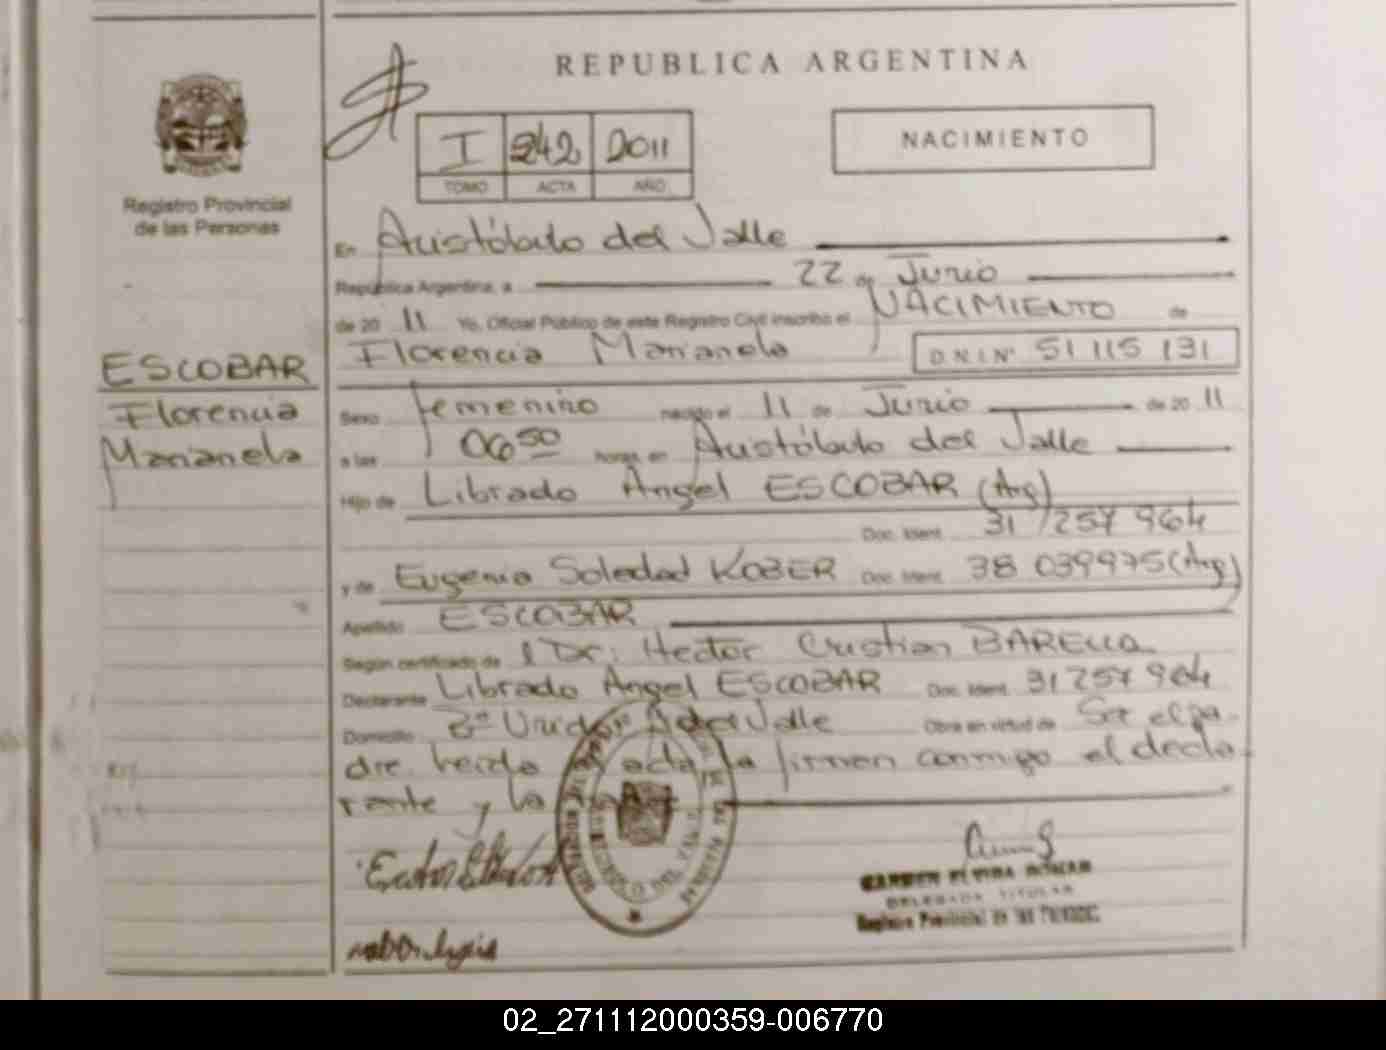 REPUBLICA ARGENTINA
Registro Provincial
de las Personas
I 242 2011
TOMO ACTA AÑO
NACIMIENTO
En Aristóbulo del Valle
República Argentina, a 22 de Junio
de 20 11 Yo, Oficial Público de este Registro Civil inscribo el NACIMIENTO de
Florencia Marianela D.N.I. Nº 51 115 131
ESCOBAR
Florencia
Marianela
Sexo femenino nacido el 11 de Junio de 20 11
a las 06 50 horas en Aristóbulo del Valle
Hijo de Librado Angel ESCOBAR (Arg)
Doc. Ident. 31 257 964
y de Eugenia Soledad KOBER Doc. Ident. 38 039975 (Arg)
Apellido ESCOBAR
Según certificado de Dr. Hector Cristian BARELLA
Declarante Librado Angel ESCOBAR Doc. Ident. 31 257 964
Domicilio Bº Unidos A del Valle Obra en virtud de Ser el pa-
dre. leída acta la firman conmigo el decla-
rante y la
CARMEN ELVIRA
DELEGADA TITULAR
Registro Provincial de las Personas
02_271112000359-006770